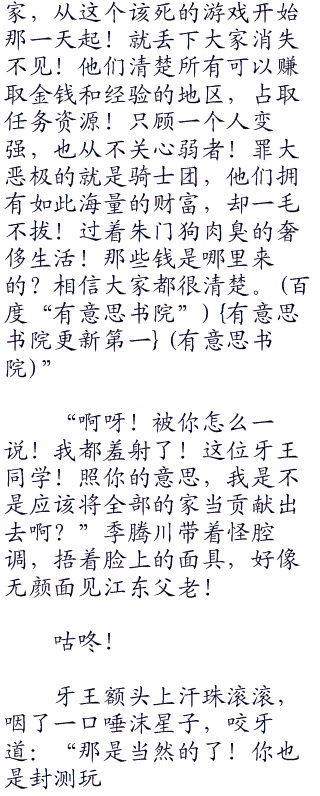 家，从这个该死的游戏开始
那一天起！就丢下大家消失
不见！他们清楚所有可以赚
取金钱和经验的地区，占取
任务资源！只顾一个人变
强，也从不关心弱者！罪大
恶极的就是骑士团，他们拥
有如此海量的财富，却一毛
不拔！过着朱门狗肉臭的奢
侈生活！那些钱是哪里来
的？相信大家都很清楚。（百
度“有意思书院”）{有意思
书院更新第一}（有意思书
院）”
“啊呀！被你怎么一
说！我都羞射了！这位牙王
同学！照你的意思，我是不
是应该将全部的家当贡献出
去啊？”季腾川带着怪腔
调，捂着脸上的面具，好像
无颜面见江东父老！
咕咚！
牙王额头上汗珠滚滚，
咽了一口唾沫星子，咬牙
道：“那是当然的了！你也
是封测玩